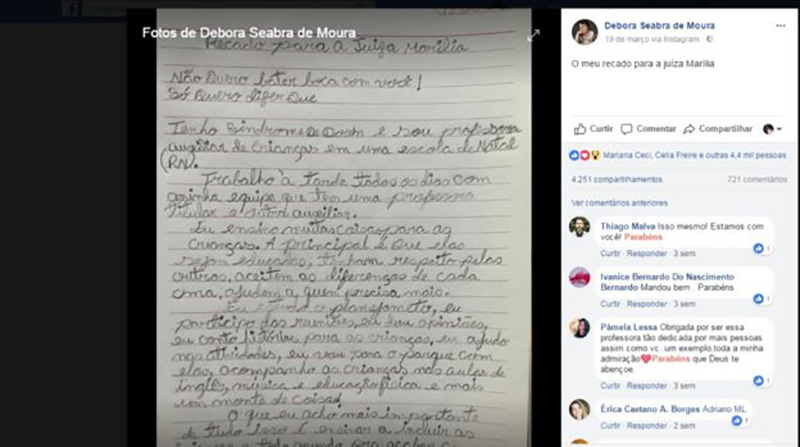 Fotos de Debora Seabra de Moura
Recado para a Juíza Marília
Não Quero bater boca com você!
Só Quero dizer que
Tenho Sindrome de Down e sou professora
auxiliar de crianças em uma escola de Natal
(RN).
Trabalho à tarde todos os dias com
minha equipe que tem uma professora
titular e outra auxiliar.
Eu ensino muitas coisas para as
crianças. A principal é que elas
sejam educadas, tenham respeito pelas
outras, aceitem as diferenças de cada
uma, ajudem a quem precisa mais.
Eu estudo o planejamento, eu
participo das reuniões, eu dou opiniões,
eu conto histórias para as crianças, eu ajudo
nas atividades, eu vou para o parque com
elas, acompanho as crianças nas aulas de
inglês, música e educação física e mais
um monte de coisas!
O que eu acho mais importante
de tudo isso é ensinar a incluir as
Debora Seabra de Moura
19 de março via Instagram
O meu recado para a juíza Marília
Curtir Comentar Compartilhar
Mariana Ceci, Celia Freire e outras 4,4 mil pessoas
4.251 compartilhamentos 721 comentários
Ver comentários anteriores
Thiago Malva Isso mesmo! Estamos com
você! Parabéns
Curtir · Responder · 3 sem
1
Ivanice Bernardo Do Nascimento
Bernardo Mandou bem . Parabéns
Curtir · Responder · 3 sem
1
Pâmela Lessa Obrigada por ser essa
professora tão dedicada,por mais pessoas
assim como vc. um exemplo,toda a minha
admiração❤Parabéns que Deus te
abençoe.
Curtir · Responder · 3 sem
1
Érica Caetano A. Borges Adriano ML
Curtir · Responder · 2 sem
1